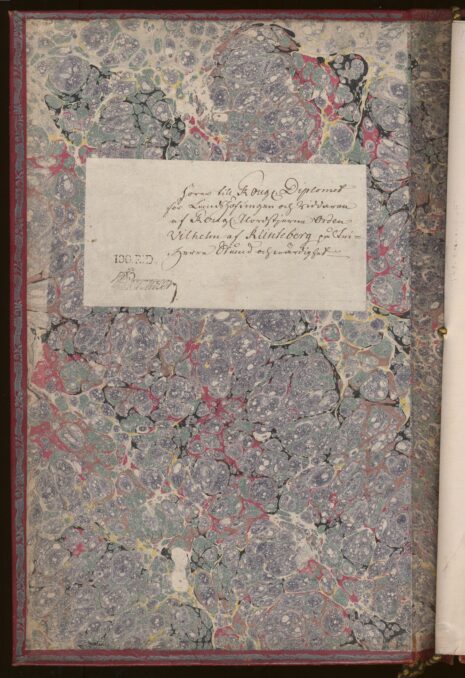 Hörer till Kongl. Diplomet
för Landshöfdingen och Riddaren
af Kongl. Nordstjerne Orden
Vilhelm af Klinteberg på Fri-
Herre Stånd och wärdighet.
100.R:D.